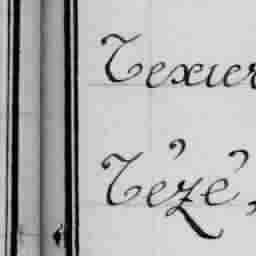 Texier
Tézé,